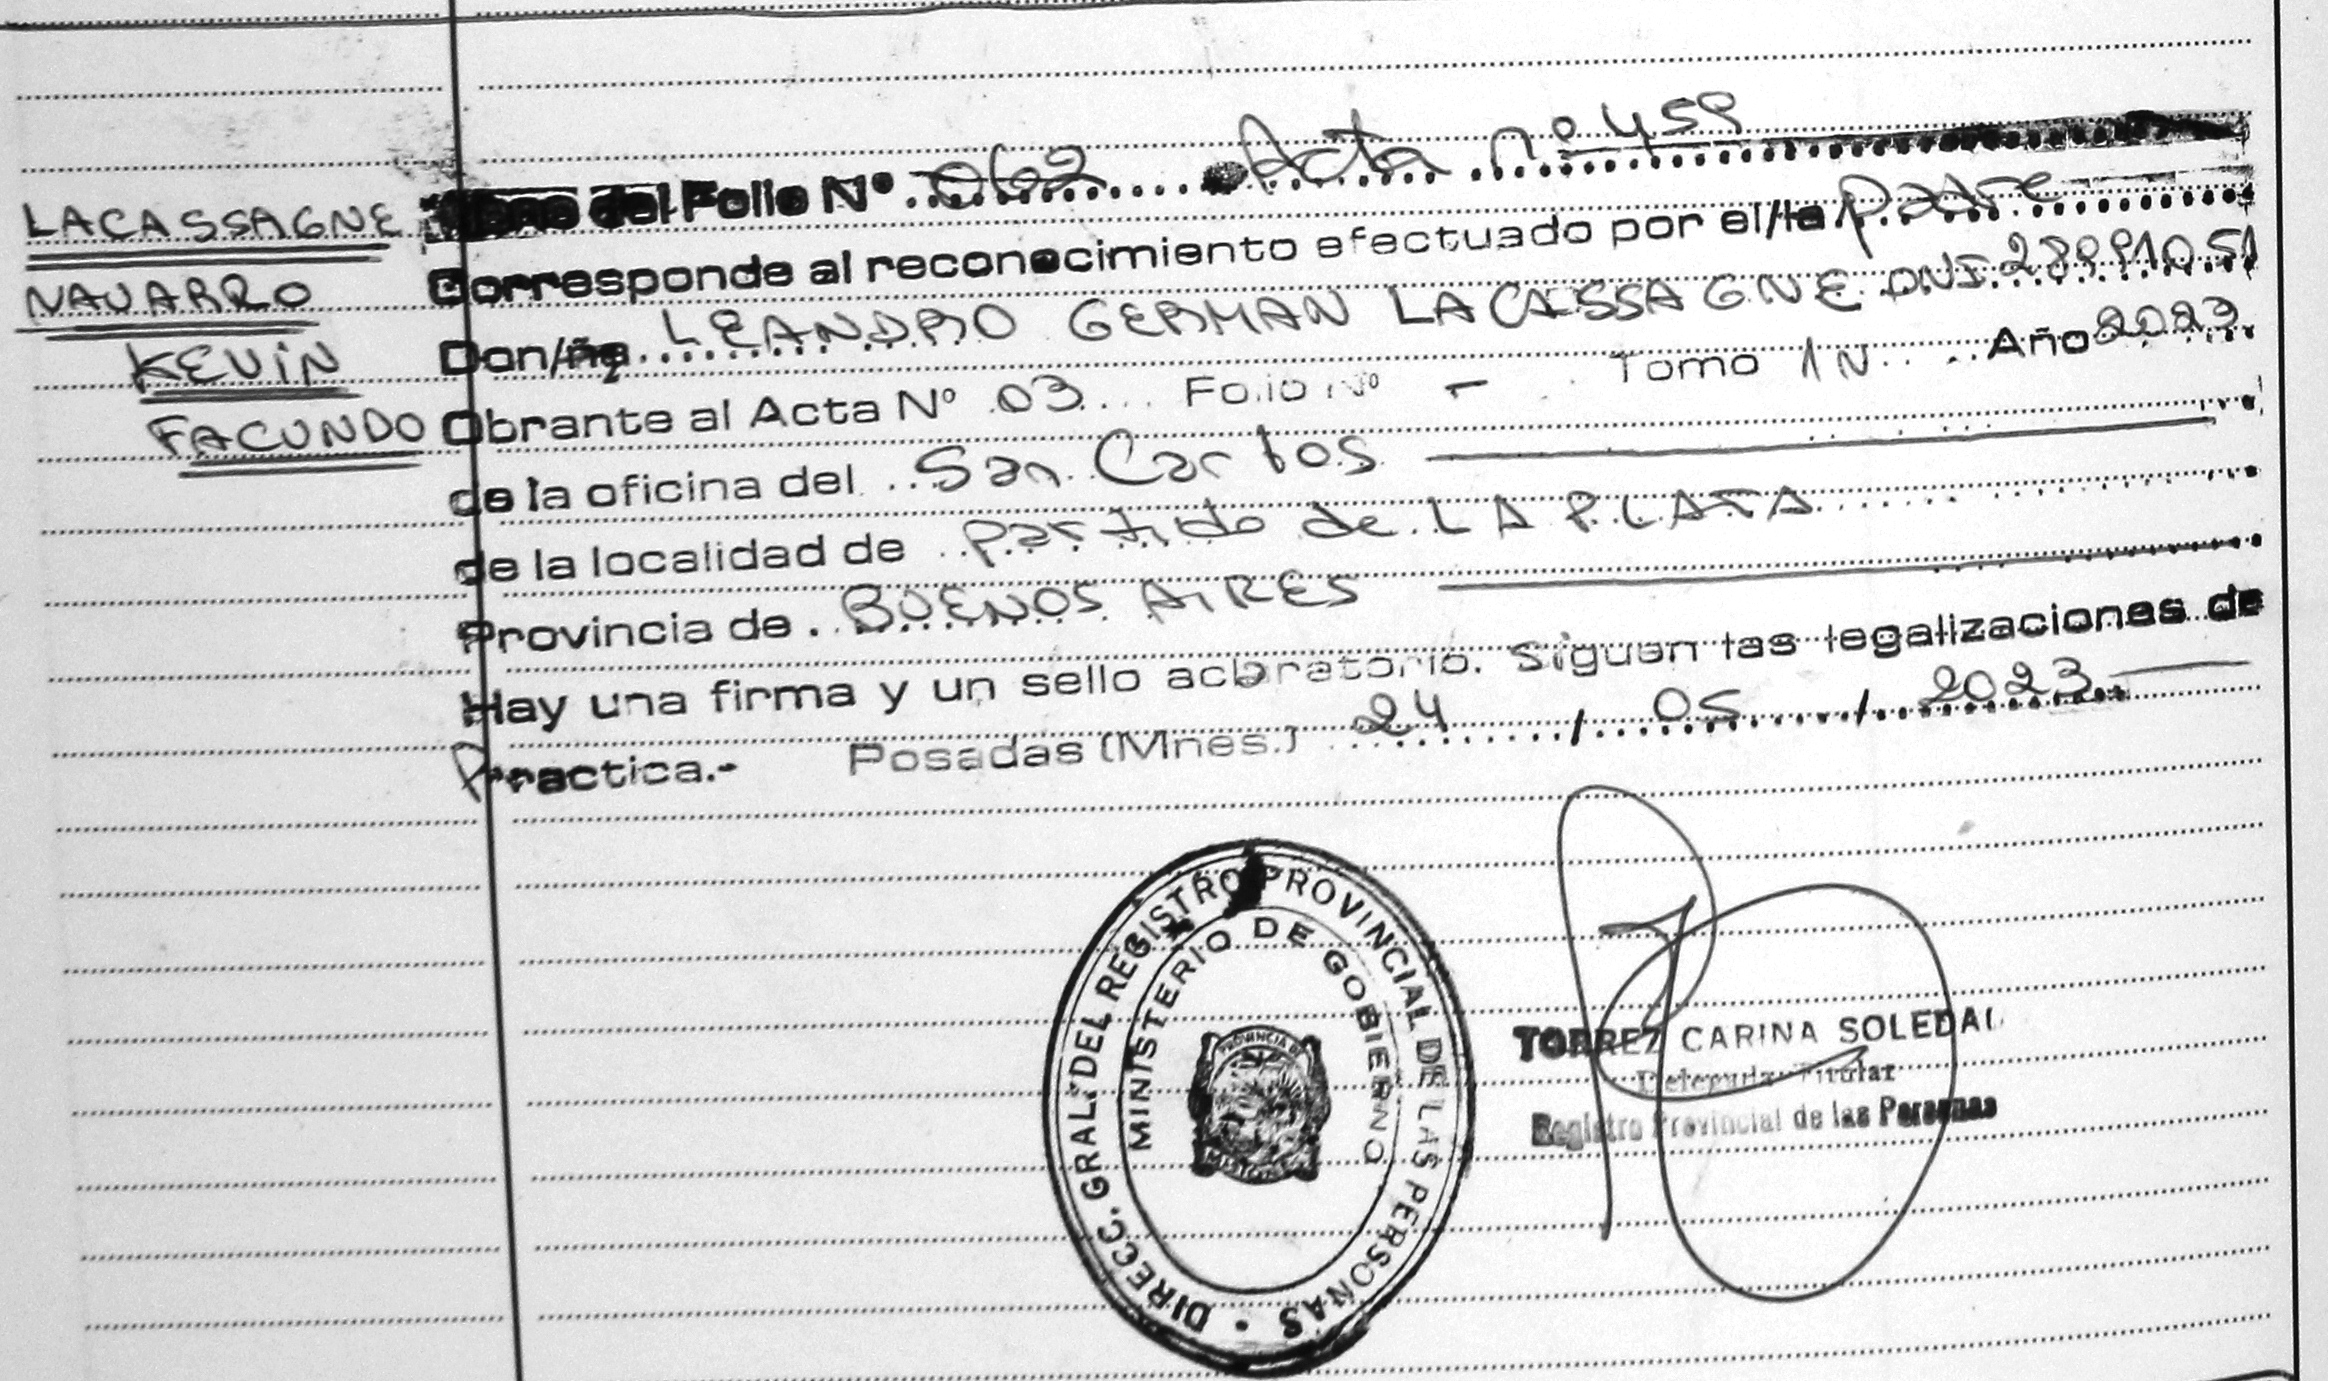 LACASSAGNE
NAVARRO
KEVIN
FACUNDO
del Folio Nº 062 Acta nº 459
Corresponde al reconocimiento efectuado por el/la padre
Don/ña LEANDRO GERMAN LACASSAGNE DNI
Obrante al Acta Nº 03 Folio Nº - Tomo 1N Año 2023
de la oficina del San Carlos
de la localidad de partido de LA PLATA
Provincia de BUENOS AIRES
Hay una firma y un sello aclaratorio. Siguen las legalizaciones de
Practica.- Posadas (Mnes.) 24 / 05 / 2023
DIRECC. GRAL. DEL REGISTRO PROVINCIAL DE LAS PERSONAS
MINISTERIO DE GOBIERNO
PROVINCIA DE
MISIONES
TORREZ CARINA SOLEDAD
Delegada Titular
Registro Provincial de las Personas